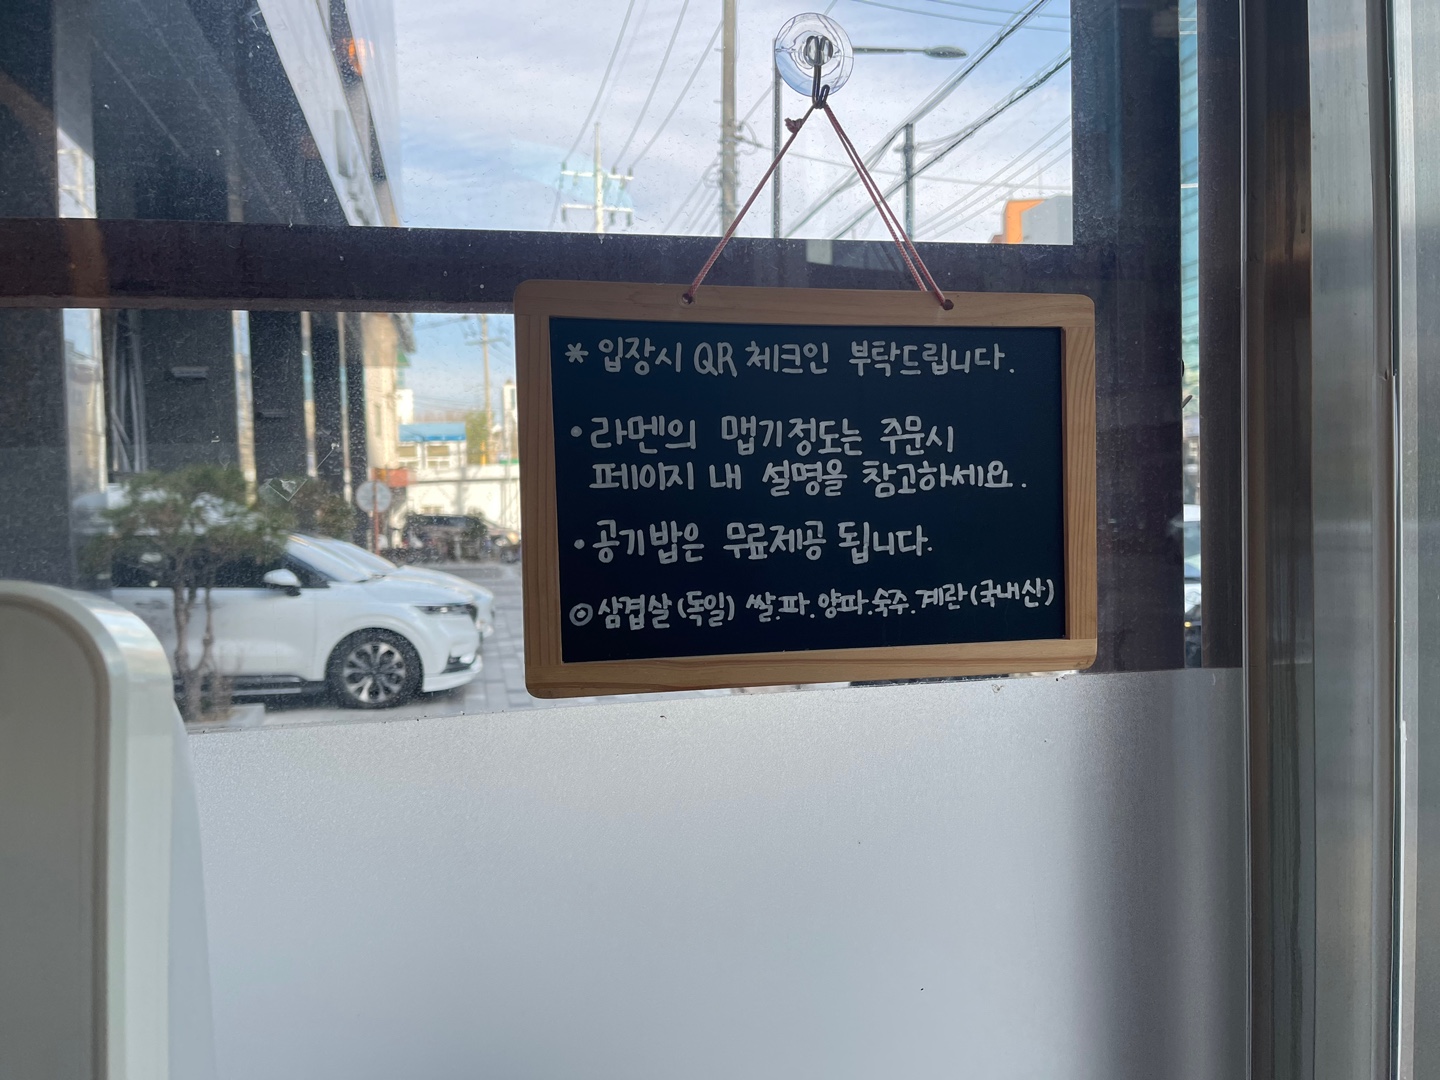 * 입장시 QR 체크인 부탁드립니다.
• 라멘의 맵기정도는 주문시
페이지 내 설명을 참고하세요.
• 공기밥은 무료제공 됩니다.
◎ 삼겹살(독일) 쌀.파.양파.숙주.계란(국내산)